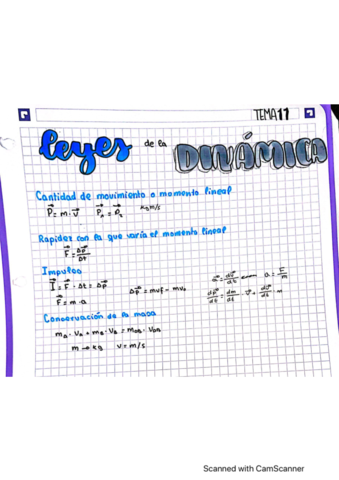 TEMA 11
leyes de la DINÁMICA
Cantidad de movimiento o momento lineal
P⃗ = m · v⃗    kg m/s
Rapidez con la que varía el momento lineal
F⃗ = Δp⃗/Δt
Impulso
I⃗ = F⃗ · Δt = Δp⃗    Δp⃗ = mvf - mv₀
F⃗ = m · a
a⃗ = dv⃗/dt    a = F/m
dp⃗/dt = dm/dt · v⃗ + dv⃗/dt · m
Conservación de la masa
m → kg    v = m/s
Scanned with CamScanner